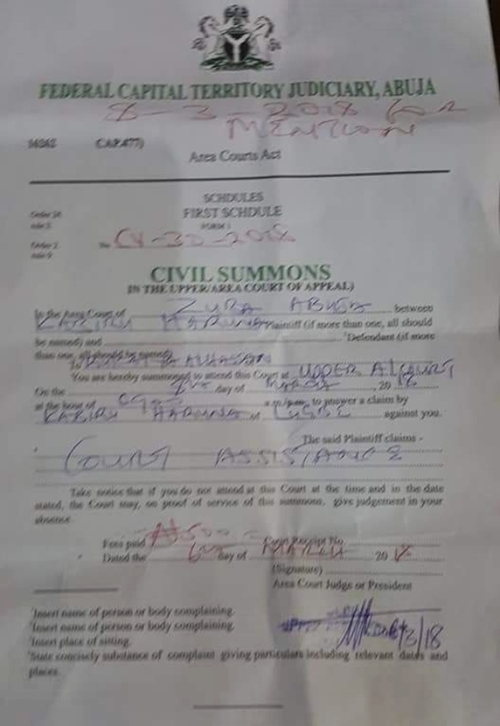 FEDERAL CAPITAL TERRITORY JUDICIARY, ABUJA
8-3-2018 for
MENTION
CAP.477)
Area Courts Act
SCHDULES
FIRST SCHDULE
FORM 1
No CV-30-2018
CIVIL SUMMONS
(IN THE UPPER/AREA COURT OF APPEAL)
In the Area Court of ZUBA ABUJA between
KABIRU HARUNA Plaintiff (if more than one, all should
be named) and Defendant (if more
than one, all should be named)
To ALHASAN
You are hereby summoned to attend this Court at UPPER A/COURT
On the 8th day of MARCH 2018
at the hour of 0900 a.m/p.m. to answer a claim by
KABIRU HARUNA of against you.
The said Plaintiff claims -
COURT ASSISTANCE
Take notice that if you do not attend at this Court at the time and in the date
stated, the Court may, on proof of service of this summons, give judgement in your
absence.
Fees paid ₦500 Court Receipt No.
Dated the 6th day of MARCH 2018
(Signature)
Area Court Judge or President
Insert name of person or body complaining.
Insert name of person or body complaining.
Insert place of sitting.
State concisely substance of complaint giving particulars including relevant dates and
places.
6/3/18